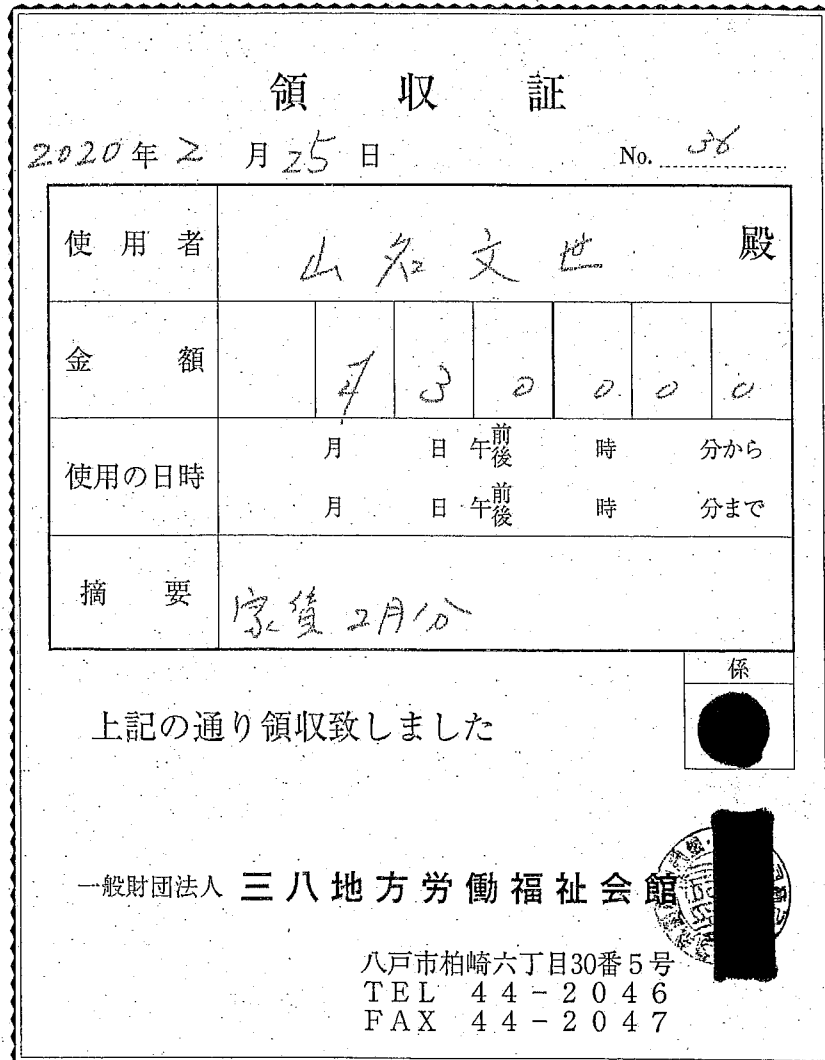 領収証
2020年2月25日 No. 36
使用者 山名文世 殿
金額 ¥30000
使用の日時 月 日 午前後 時 分から
月 日 午前後 時 分まで
摘要 家賃2月分
係
上記の通り領収致しました
一般財団法人 三八地方労働福祉会館
八戸市柏崎六丁目30番5号
TEL 44-2046
FAX 44-2047